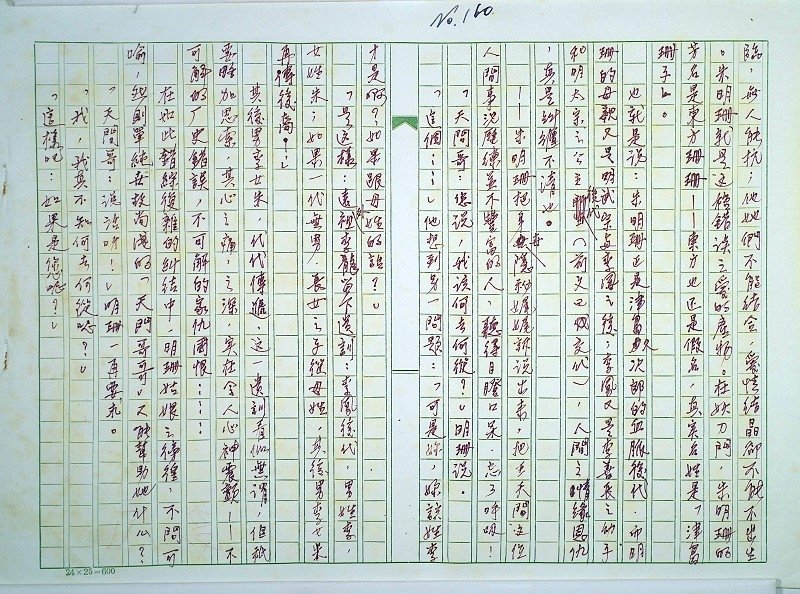 No. 160
臨，無人能抗；他她們不能結合，愛情結晶卻不能不出生
。朱明珊就是這份錯誤之愛的產物。在妖刀門，朱明珊的
芳名是東方珊珊——東方也还是假名，真实名姓是「津島
珊子」。
也就是說：朱明珊正是津島次郎的血脈後代，而明
珊的母親又是明武宗與李鳳之後；李鳳又是李善長之幼子
和明太宗之公主後代（前文已略交代），人間之情緣恩仇
，真是糾纏不清也。
——朱明珊把身世隱秘娓娓訴說出來，把王天問这位
人間事況歷練並不豐富的人，聽得目瞪口呆，忘了呼吸！
「天問哥：您說，我該何去何從？」明珊說。
「這個……」他想到另一問題：「可是妳，妳該姓李
才是啊？如果跟母姓的話？」
「是这樣：遠祖李龍留下遺訓：李鳳後代，男姓李，
女姓朱；如果一代無男，長女之子繼母姓，其後男李女朱
再傳後裔？」
其後男李女朱，代代傳遞，这一遺訓看似無謂，但祇
要略加思索，其心之痛，之深，实在令人心神震顫——不
可解的广史錯誤，不可解的家仇國恨……
在如此錯綜復雜的糾結中，明珊姑娘之徬徨，不問可
喻，然則單純世故尚淺的「天問哥哥」又能幫助她什么？
「天問哥：說話呀！」明珊一再要求。
「我，我真不知何去何從呢？」
「這樣吧：如果是您呢？」
24×25=600